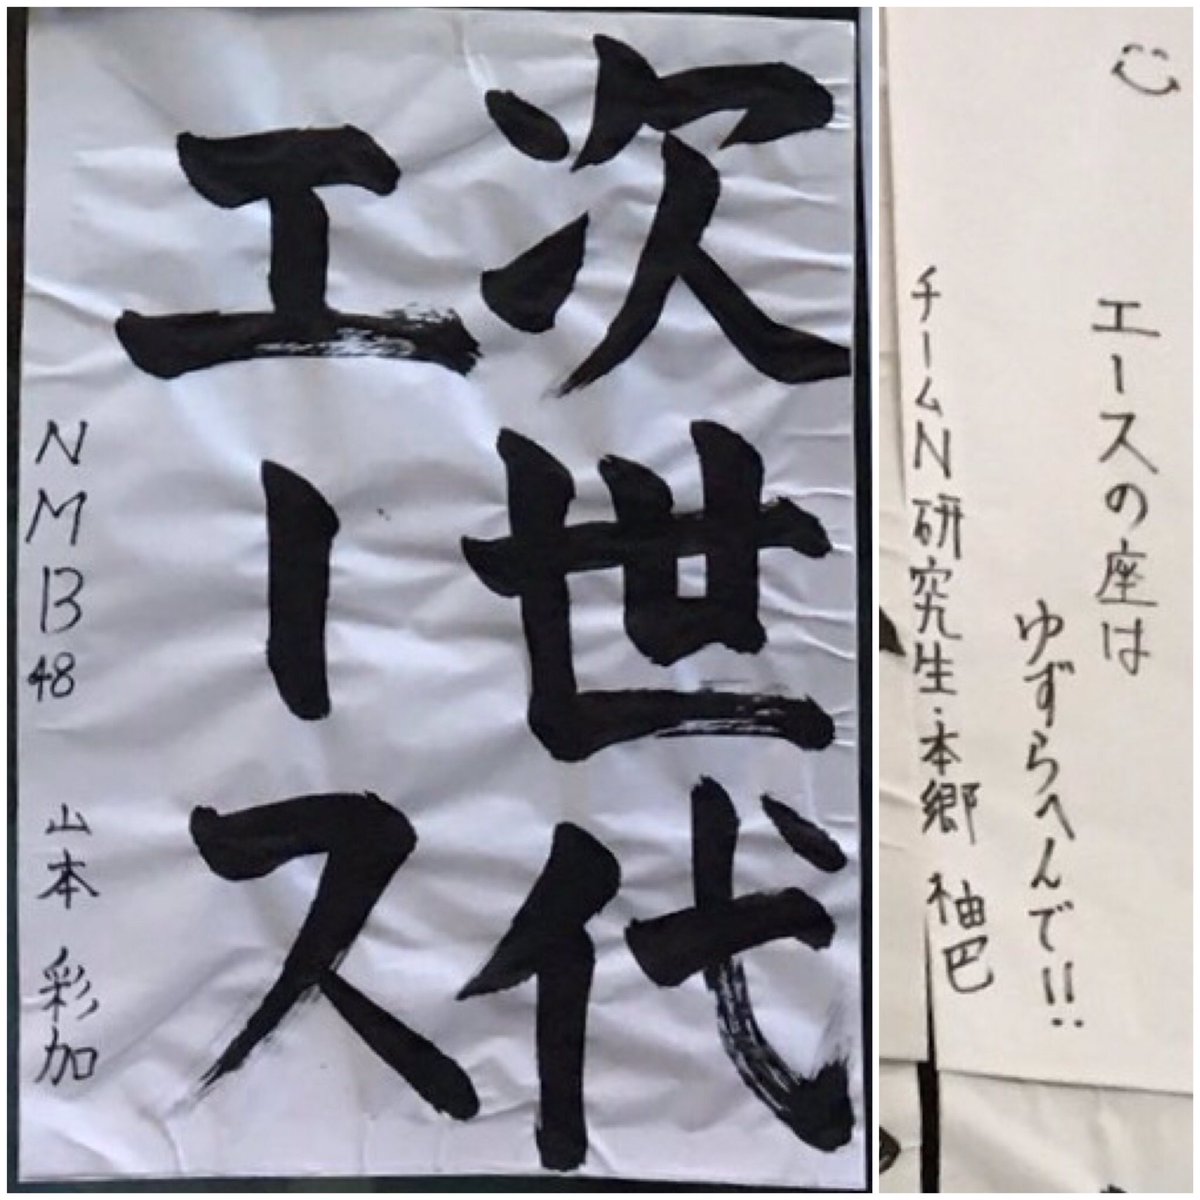 次世代
エース
NMB48 山本 彩加
エースの座は
ゆずらへんで!!
チームN研究生・本郷 柚巴